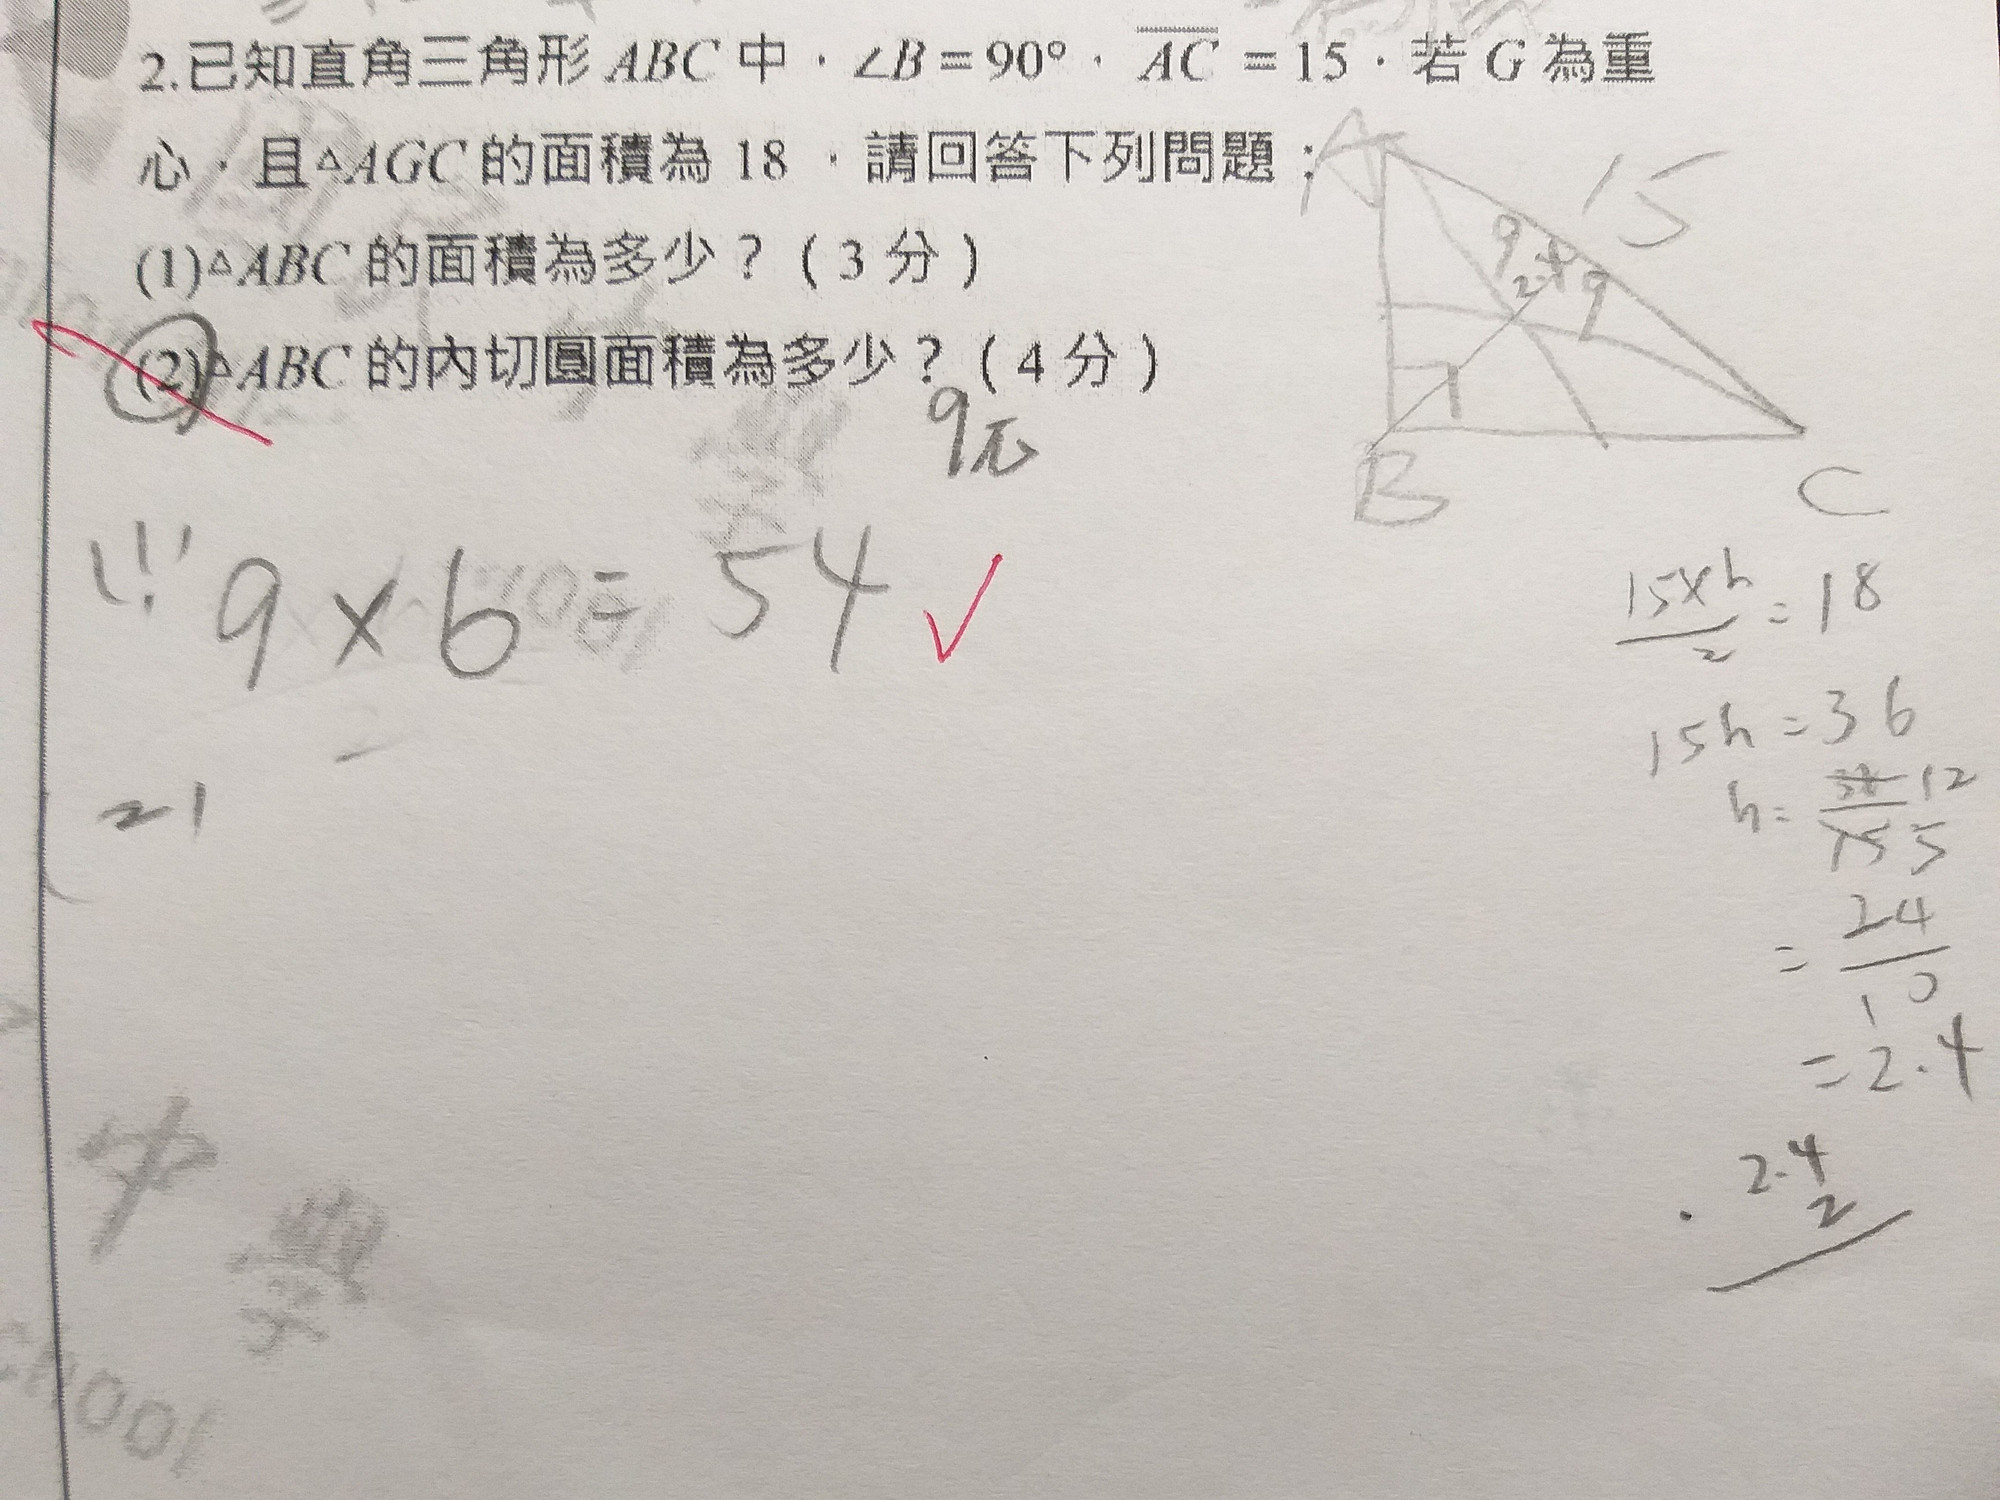 2.已知直角三角形 ABC 中，∠B＝90°，AC ＝15，若 G 為重
心，且△AGC 的面積為 18 ，請回答下列問題：
(1)△ABC 的面積為多少？(3 分)
(2)△ABC 的內切圓面積為多少？(4 分)
9π
A
15
9
2.4
9
B
C
9 × 6 = 54
15×h/2 = 18
15h = 36
h = 36/15 12/5
= 24/10
= 2.4
2.4
2
中
學
chool